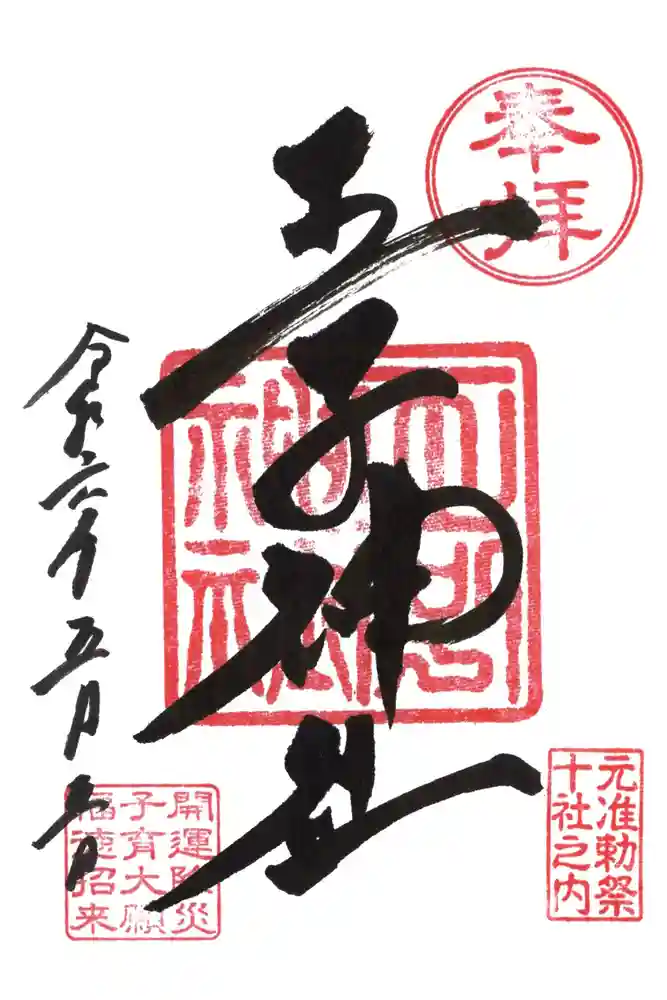 奉拝
王子神社
元准勅祭
十社之内
令和六年五月
開運除災
子育大願
福徳招来